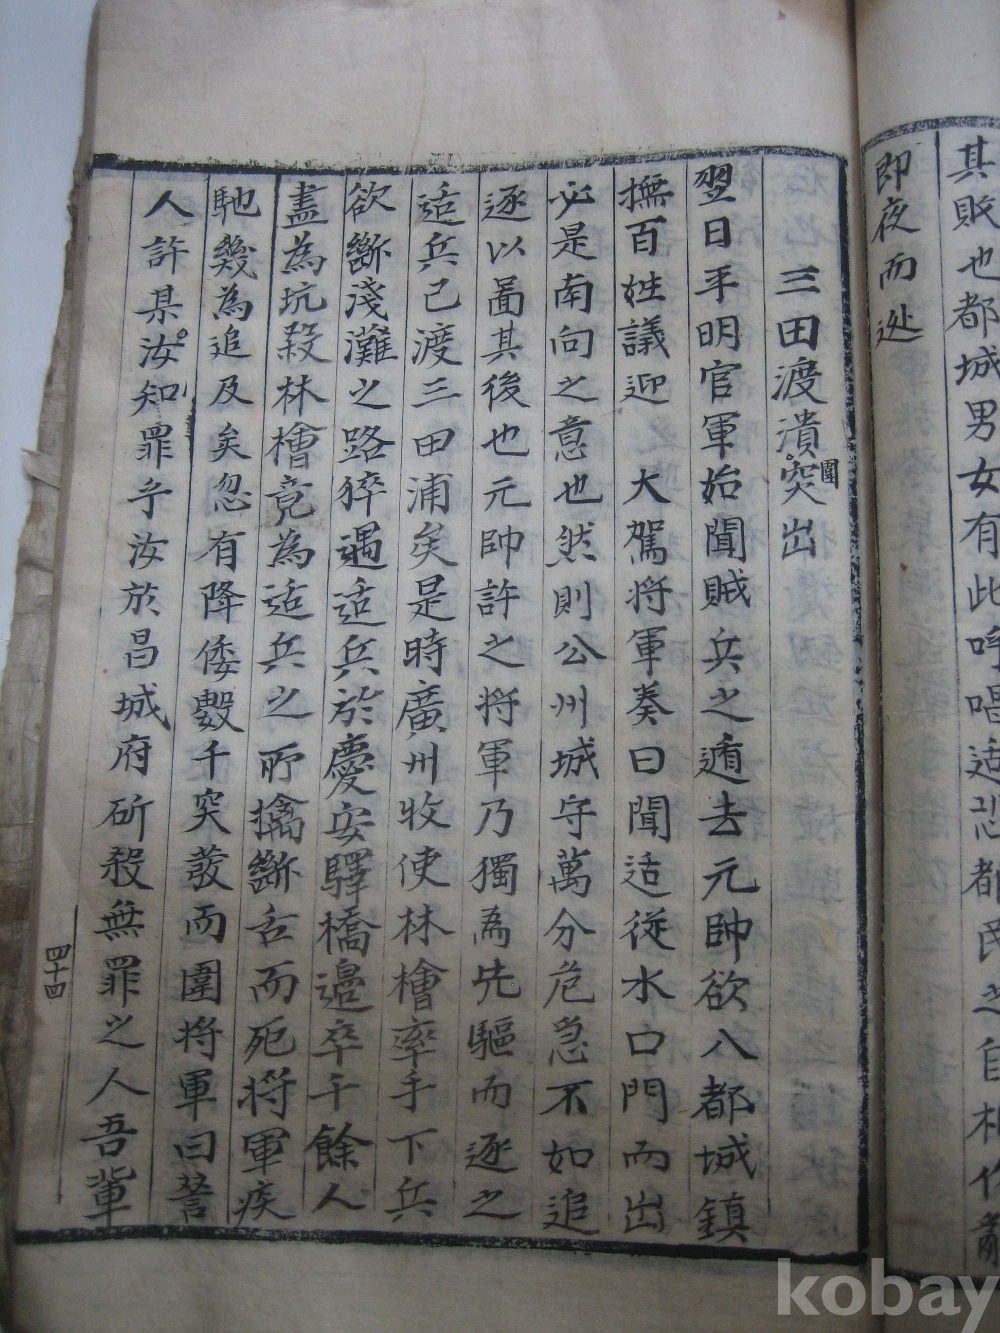 其敗也都城男女有此呼唱适恐都民之自相
即夜而迯
三田渡潰圍突出
翌日平明官軍始聞賊兵之遁去元帥欲入都城鎮
撫百姓議迎大駕將軍奏曰聞适從水口門而出
必是南向之意也然則公州城守萬分危急不如追
逐以啚其後也元帥許之將軍乃獨爲先驅而逐之
适兵已渡三田浦矣是時廣州牧使林檜率手下兵
欲斷淺灘之路猝遇适兵於慶安驛橋邉卒千餘人
盡為坑殺林檜竟為适兵之所擒斷舌而死將軍疾
馳幾為追及矣忽有降倭數千突發而圍將軍曰詈
人許某汝知罪乎汝於昌城府斫殺無罪之人吾輩
四十四
kobay